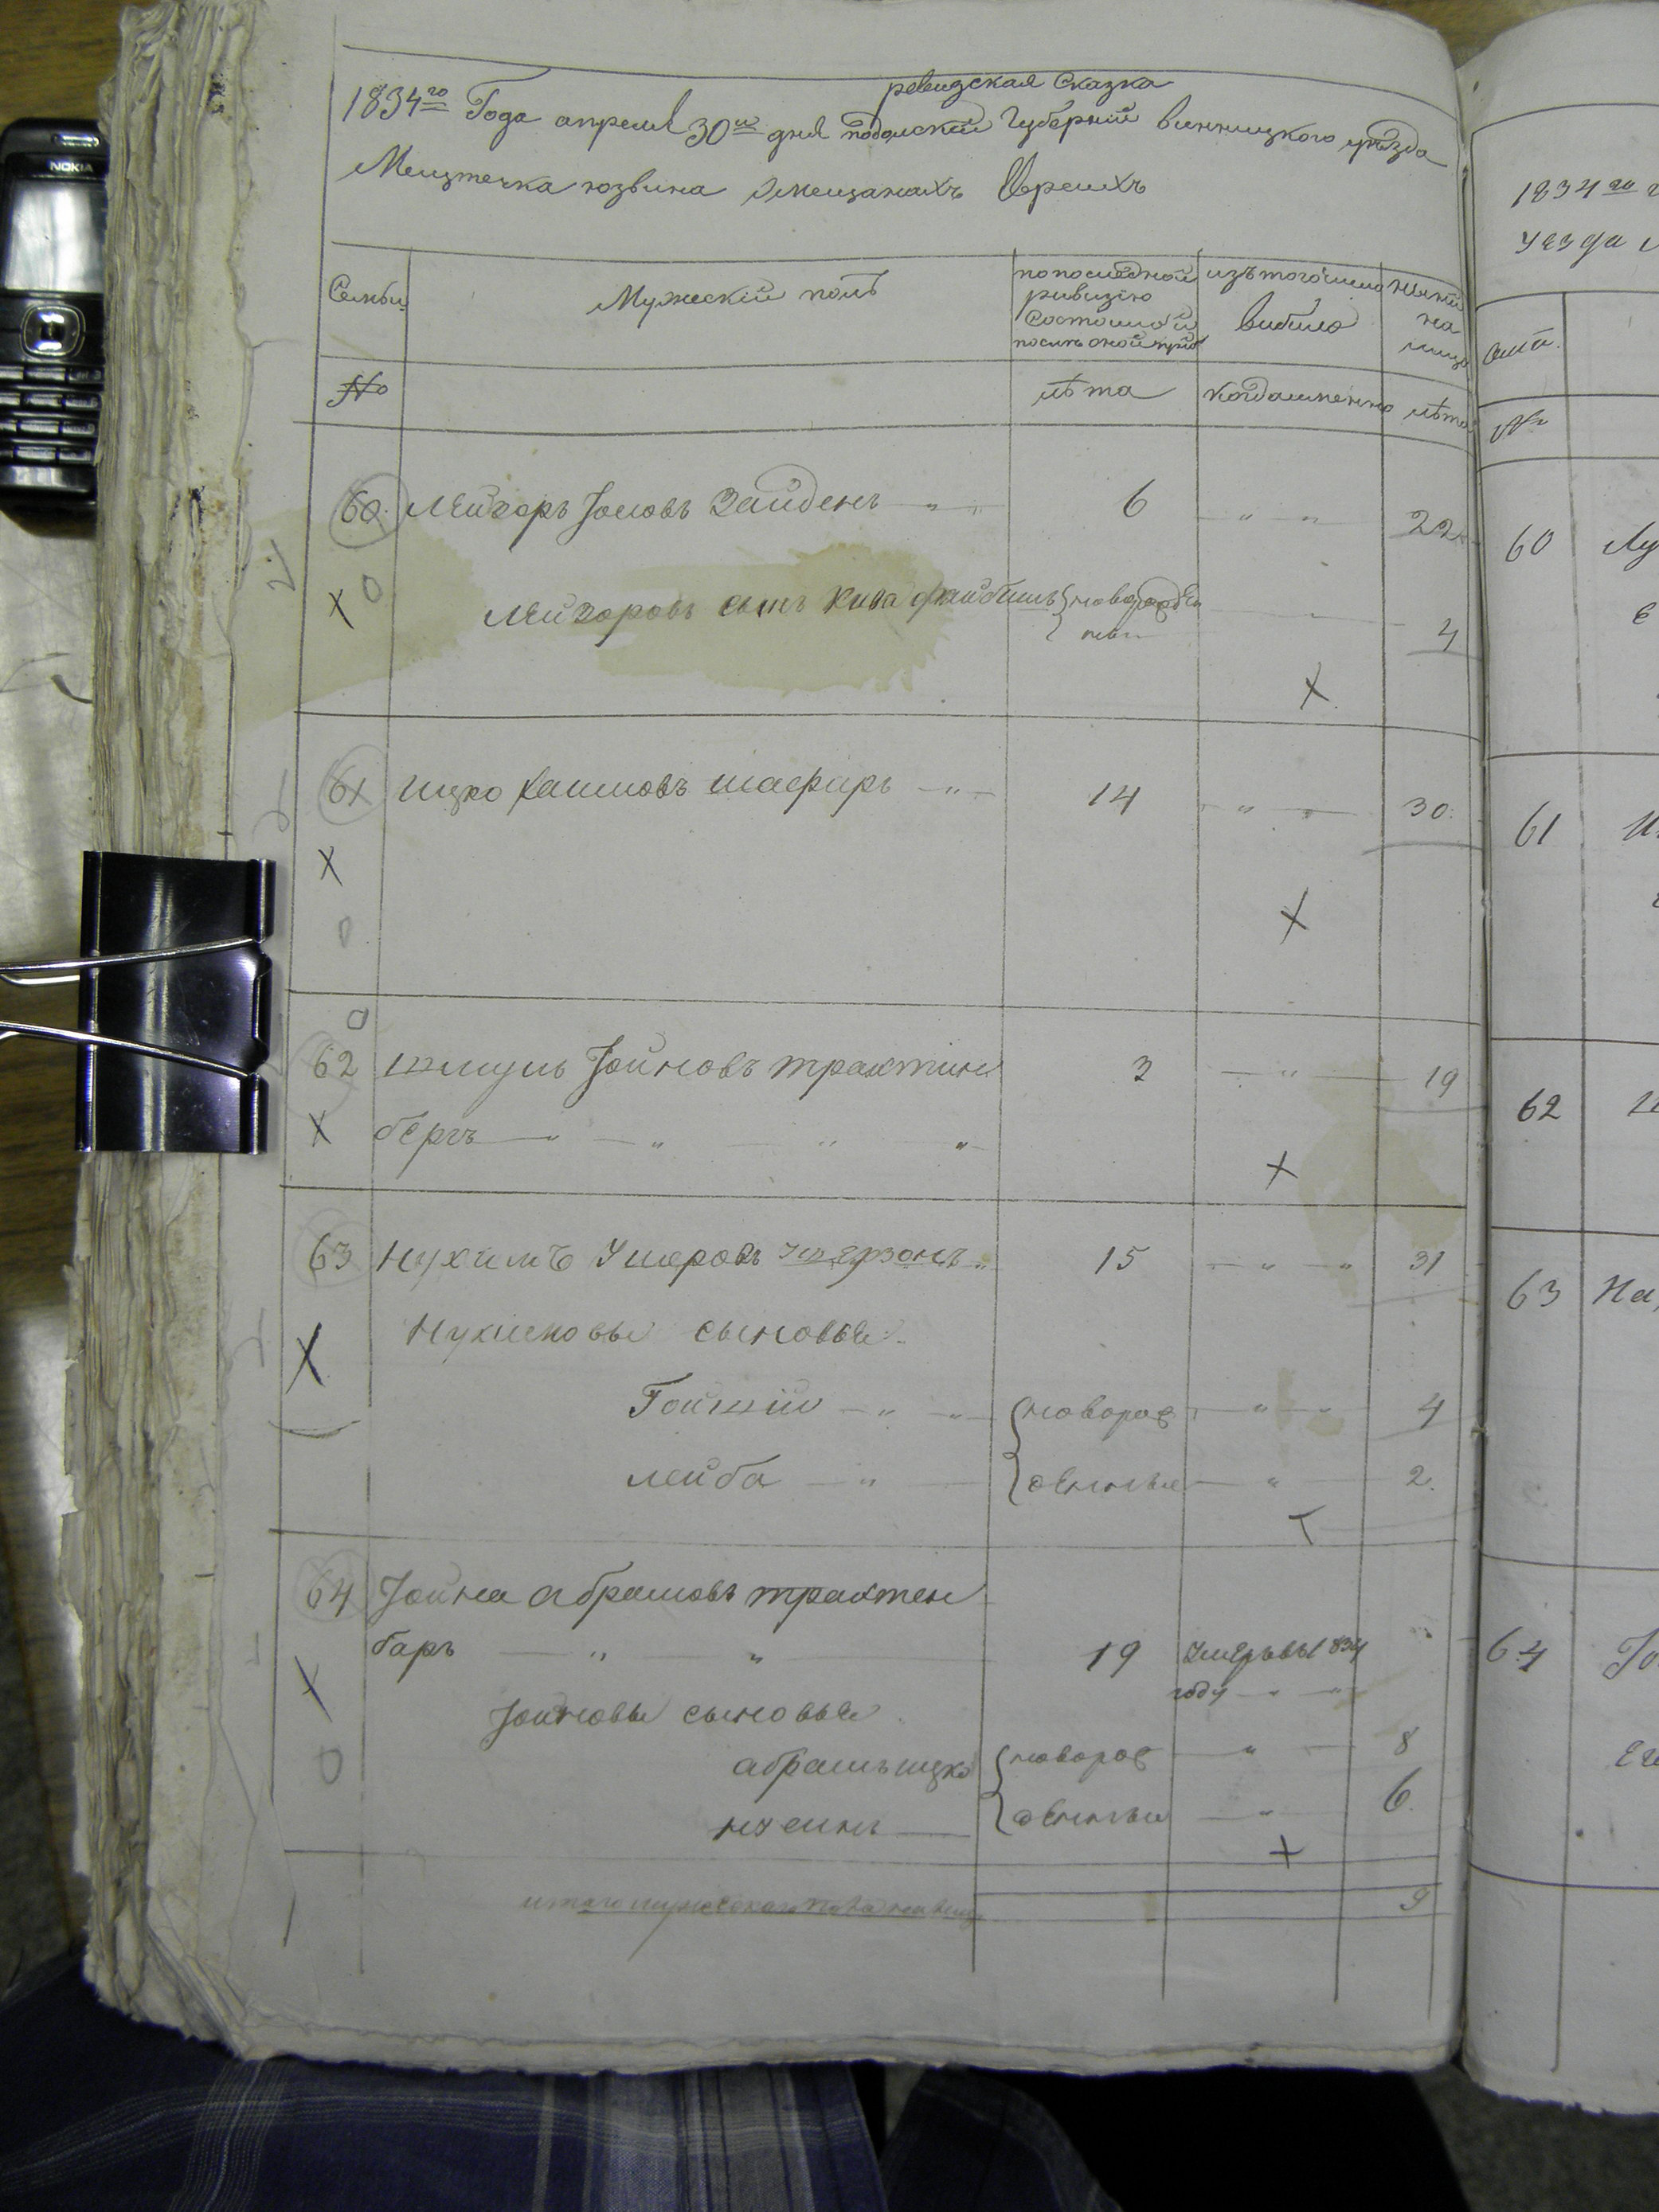 NOKIA
ревизская Сказка
1834го Года апреля 30го дня подолской Губерний винницкого уезда
Меизтечка юзвина Омещанахъ Евреихъ
Семьи
Мужеский полъ
по последной ревизию состоило и после оной прib
изъ того числа вибило
ныне на лицо
No
лѣта
когда именно
лѣта
60 Лейзоръ Іосовъ Зайденъ 6 22
Лейзоровъ сынъ Кива файбишъ новорожден 4
61 Ицко Хаимовъ шафиръ 14 30
62 шмуль Іойновъ трахтин 3 19
бергъ
63 Нухимъ Ушеровъ 15 31
Нухимовы сыновья
Гоишия новорож 4
лейба денные 2
64 Іойна абрамовъ трахтен
баръ 19 Умеръ въ 1834
году
Іойновы сыновья
абрамъ ицко новорож 8
нусинъ денные 6
итого мужеского пола на лицо 9
1834го
уезда
60 Лу
61 И
62
63 На
64 Іо
Ег